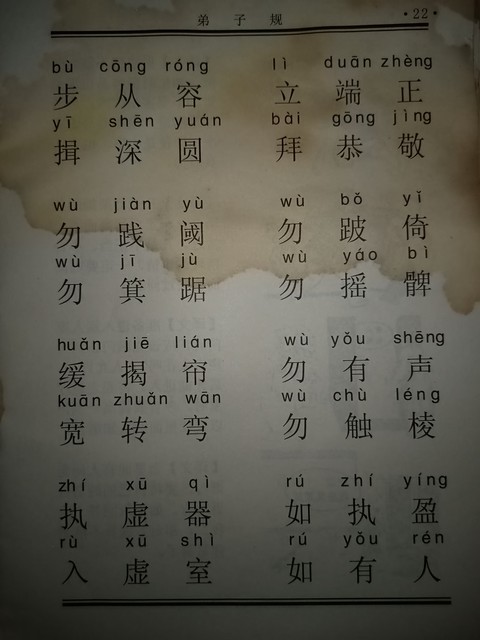 弟子规 ·22·
bù cōng róng lì duān zhèng
步从容 立端正
yī shēn yuán bài gōng jìng
揖深圆 拜恭敬
wù jiàn yù wù bǒ yǐ
勿践阈 勿跛倚
wù jī jù wù yáo bì
勿箕踞 勿摇髀
huǎn jiē lián wù yǒu shēng
缓揭帘 勿有声
kuān zhuǎn wān wù chù léng
宽转弯 勿触棱
zhí xū qì rú zhí yíng
执虚器 如执盈
rù xū shì rú yǒu rén
入虚室 如有人